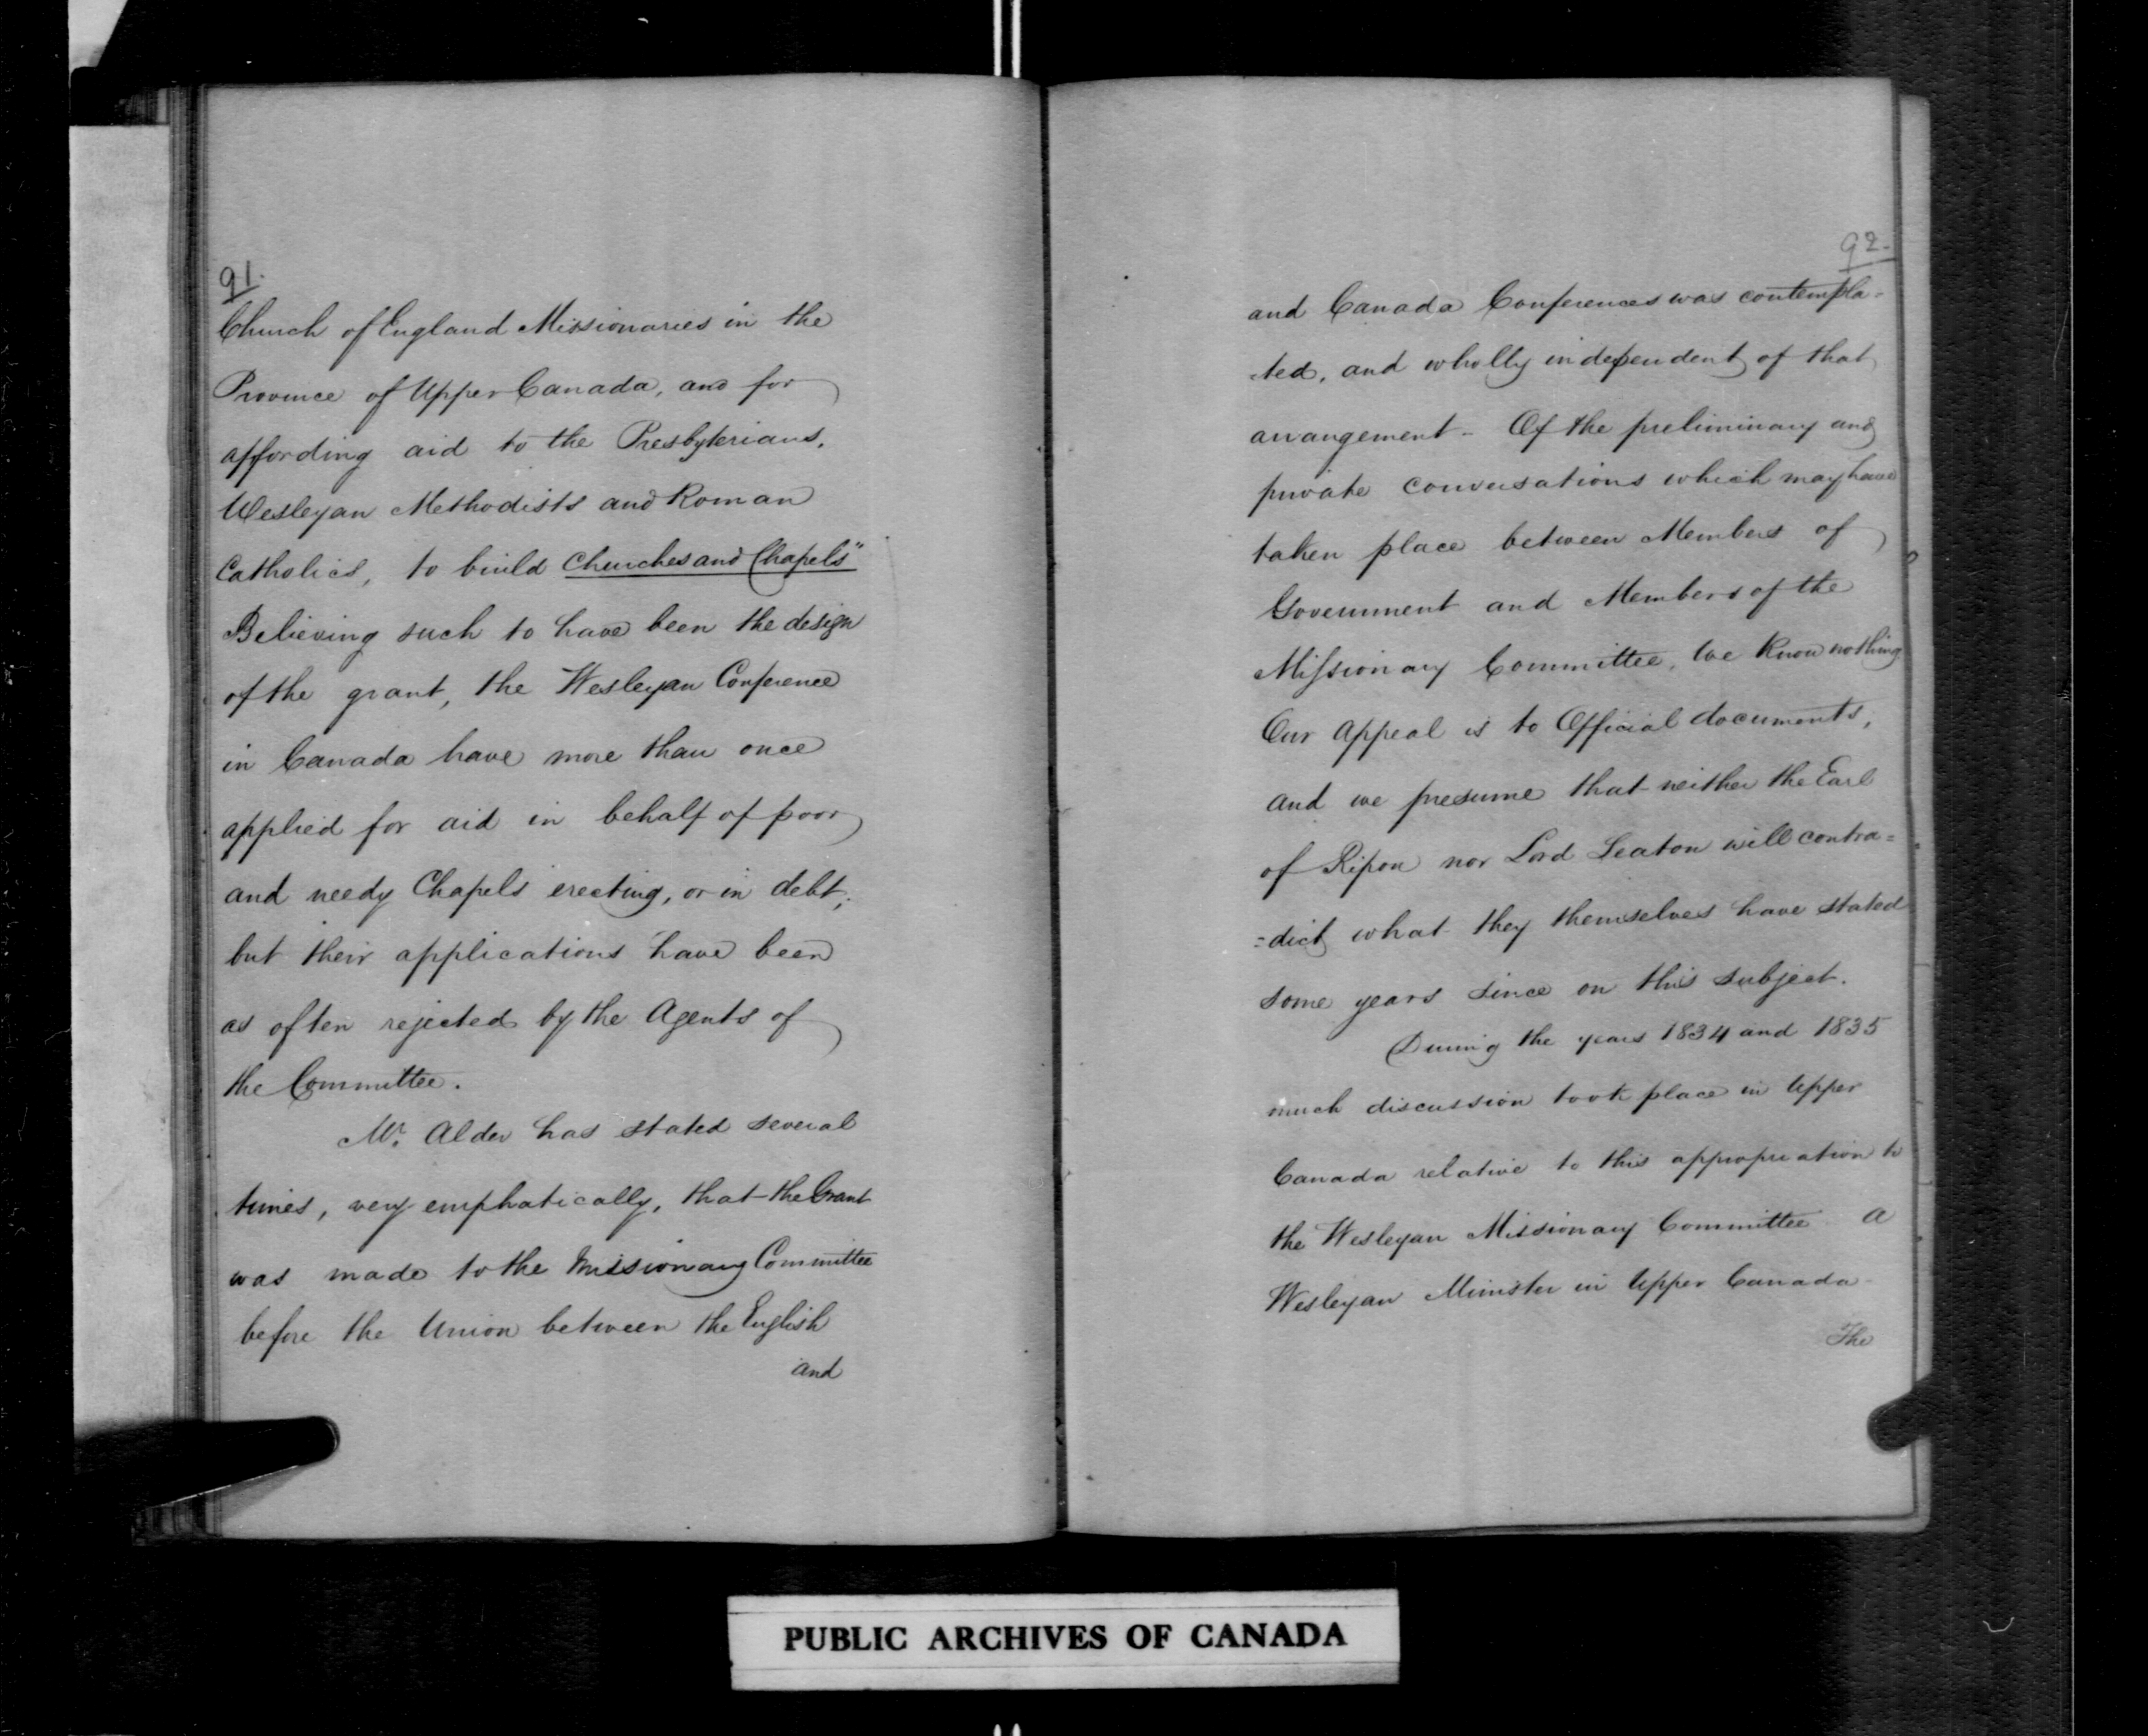 91.
Church of England Missionaries in the
Province of Upper Canada, and for
affording aid to the Presbyterians,
Wesleyan Methodists and Roman
Catholics, to build Churches and Chapels"
Believing such to have been the design
of the grant, the Wesleyan Conference
in Canada have more than once
applied for aid in behalf of poor
and needy Chapels erecting, or in debt;
but their applications have been
as often rejected by the Agents of
the Committee.
Mr. Alder has stated several
times, very emphatically, that the Grant
was made to the Missionary Committee
before the Union between the English
and
92.
and Canada Conferences was contempla-
ted, and wholly independent of that
arrangement - Of the preliminary and
private conversations which may have
taken place between Members of
Government and Members of the
Missionary Committee, we know nothing.
Our appeal is to Official documents,
and we presume that neither the Earl
of Ripon nor Lord Seaton will contra=
=dict what they themselves have stated
some years since on this subject.
During the years 1834 and 1835
much discussion took place in Upper
Canada relative to this appropriation to
the Wesleyan Missionary Committee A
Wesleyan Minister in Upper Canada
The
PUBLIC ARCHIVES OF CANADA